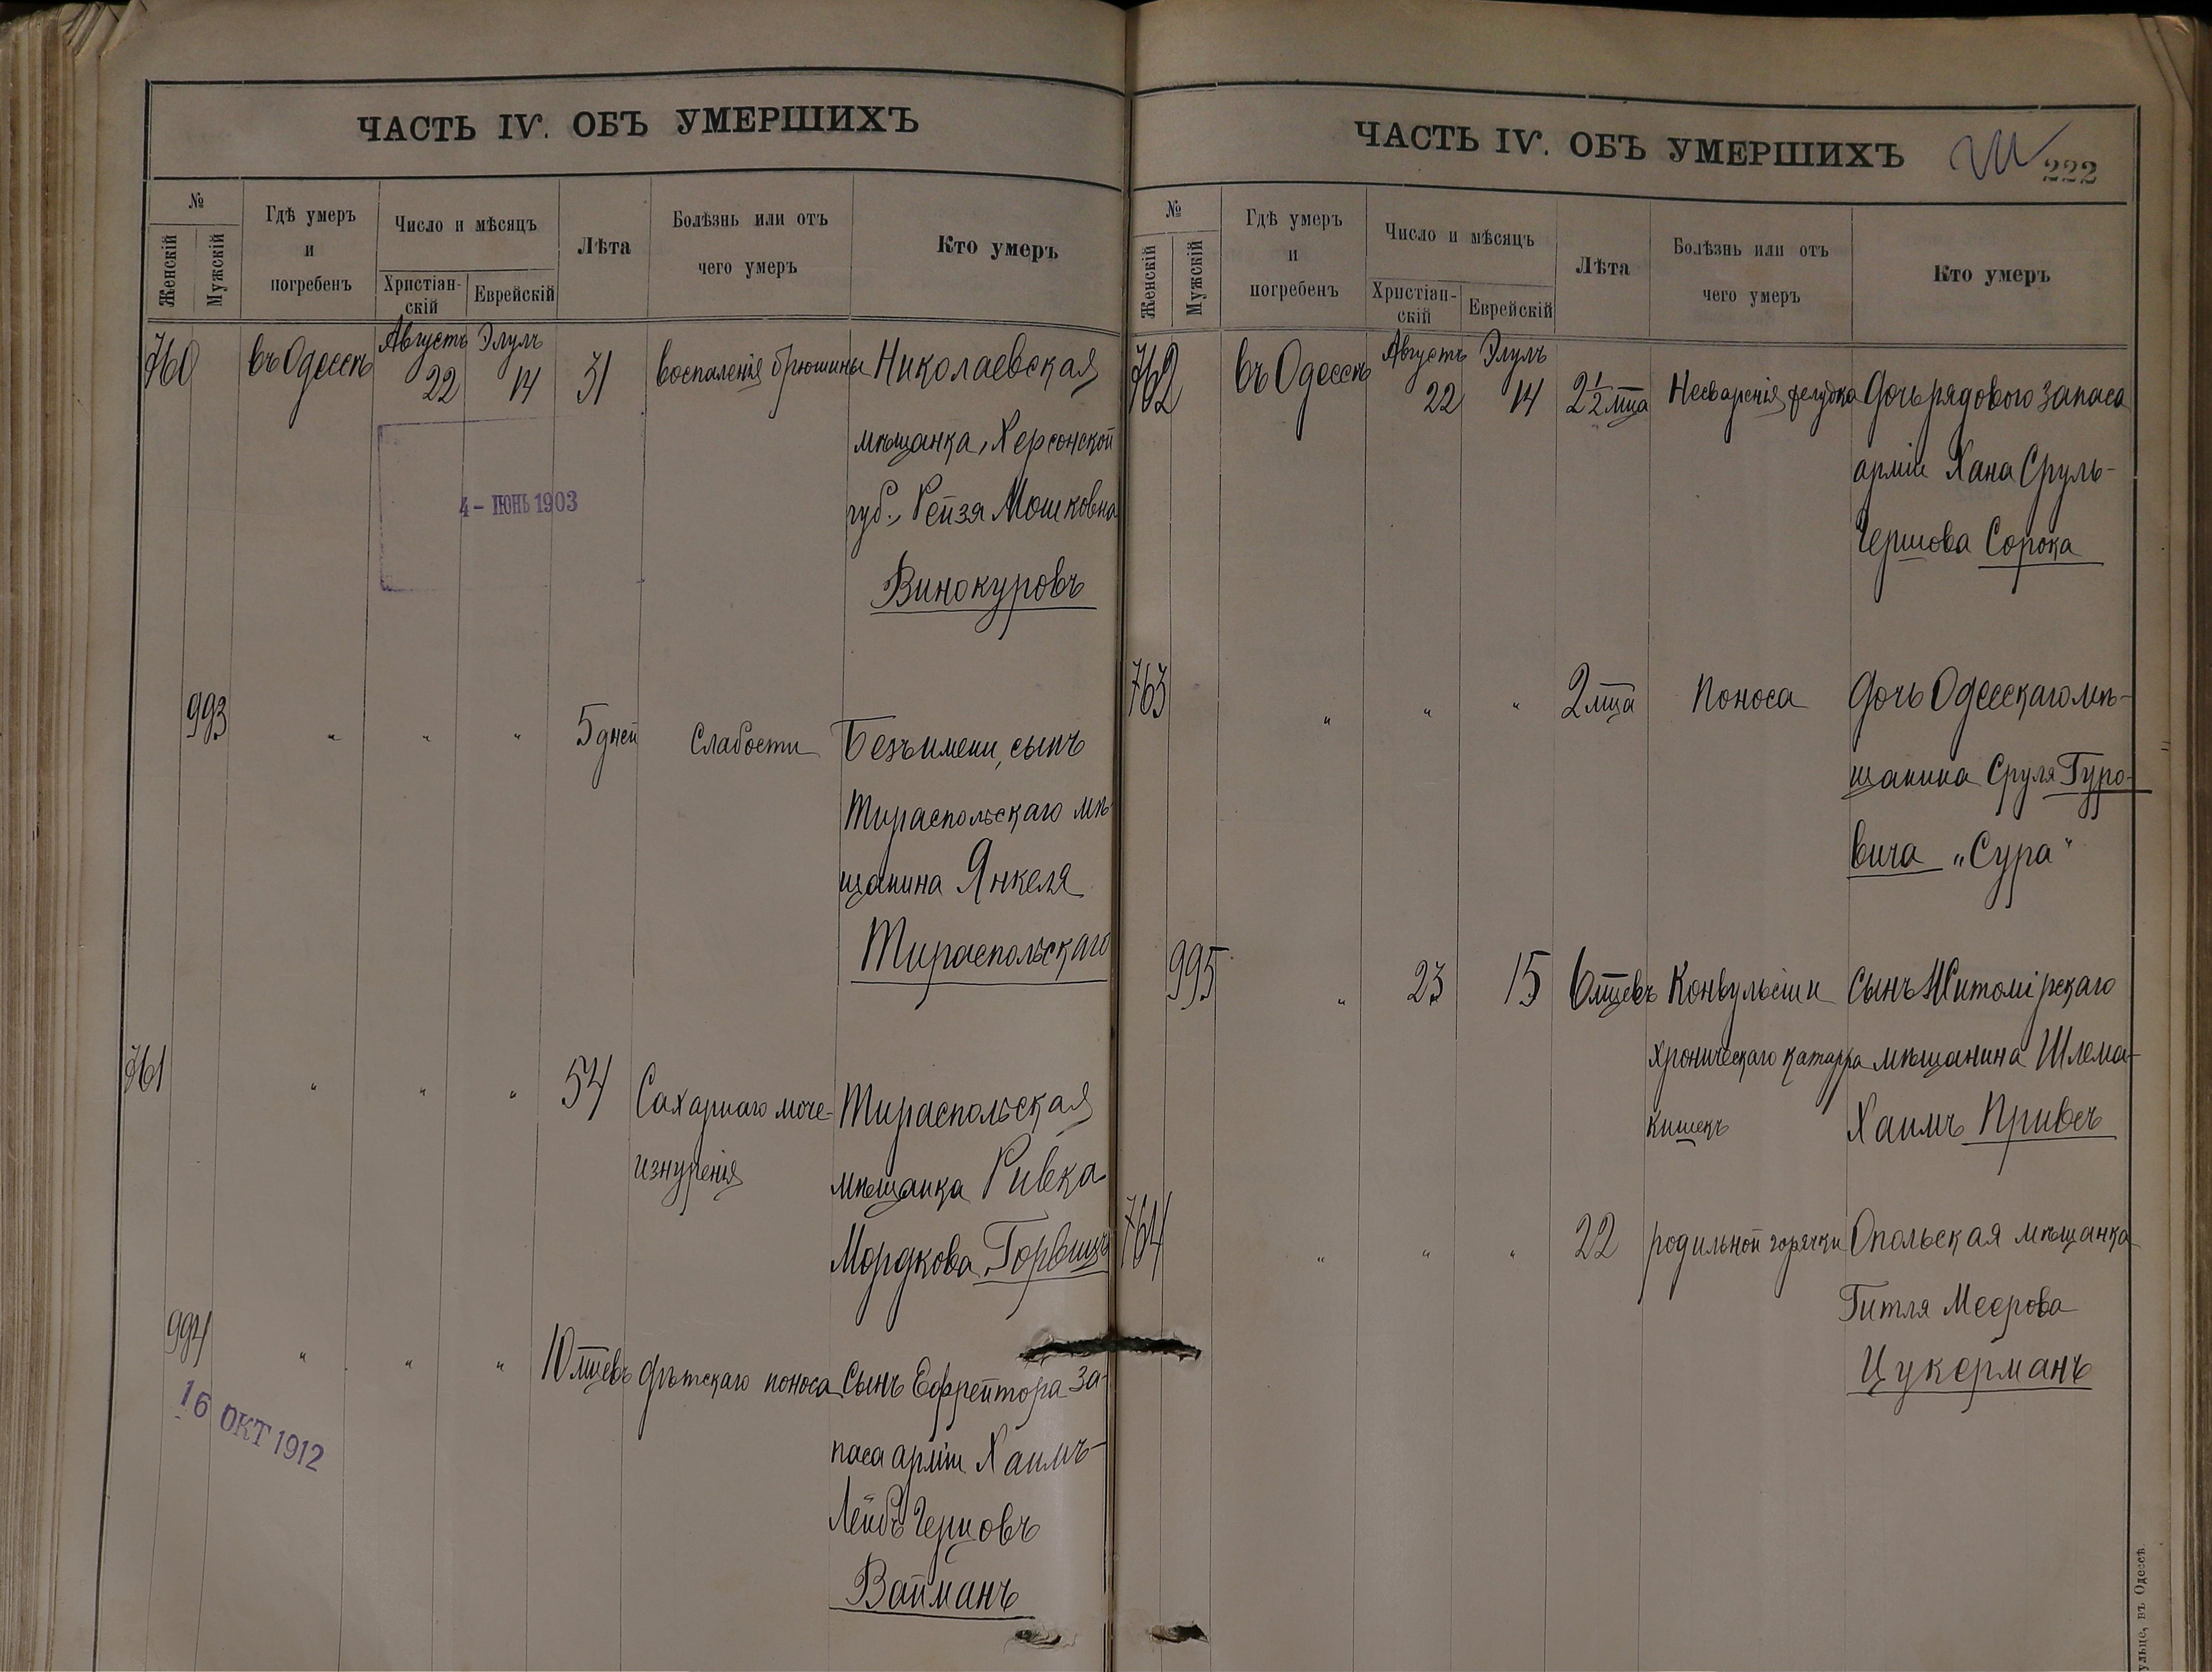 ЧАСТЬ IV. ОБЪ УМЕРШИХЪ
№
Женскій
Мужскій
Гдѣ умеръ
и
погребенъ
Число и мѣсяцъ
Христіан-
скій
Еврейскій
Лѣта
Болѣзнь или отъ
чего умеръ
Кто умеръ
760 въ Одессѣ Августъ 22 Элулъ 14 31 воспаленія брюшины Николаевская
мѣщанка, Херсонской
губ., Рейзя Мошковна
Винокуровъ
4 – ІЮНЬ 1903
993 " " " 5 дней Слабости Безъ имени, сынъ
Тираспольскаго мѣ-
щанина Янкеля
Тираспольскаго
761 " " " 54 Сахарнаго моче- Тираспольская
изнуренія мѣщанка Ривка
Мордкова Горвицъ
994 " " " 10 мцевъ дѣтскаго поноса Сынъ Ефрейтора за-
паса арміи Хаимъ-
Лейбъ Герцовъ
Вайманъ
16 ОКТ 1912
ЧАСТЬ IV. ОБЪ УМЕРШИХЪ
222
№
Женскій
Мужскій
Гдѣ умеръ
и
погребенъ
Число и мѣсяцъ
Христіан-
скій
Еврейскій
Лѣта
Болѣзнь или отъ
чего умеръ
Кто умеръ
762 въ Одессѣ Августъ 22 Элулъ 14 2 1/2 мца Несваренія желудка Дочь рядового запаса
арміи Хана Сруль-
Гершова Сорока
763 " " " 2 мца Поноса Дочь Одесскаго мѣ-
щанина Сруля Гуро-
вича „Сура"
995 " 23 15 6 мцевъ Конвульсіи и Сынъ Житомірскаго
хроническаго катарра мѣщанина Шлема-
кишекъ Хаимъ Привесъ
764 " " " 22 родильной горячки Опольская мѣщанка
Гитля Меерова
Цукерманъ
ульце, въ Одессѣ.